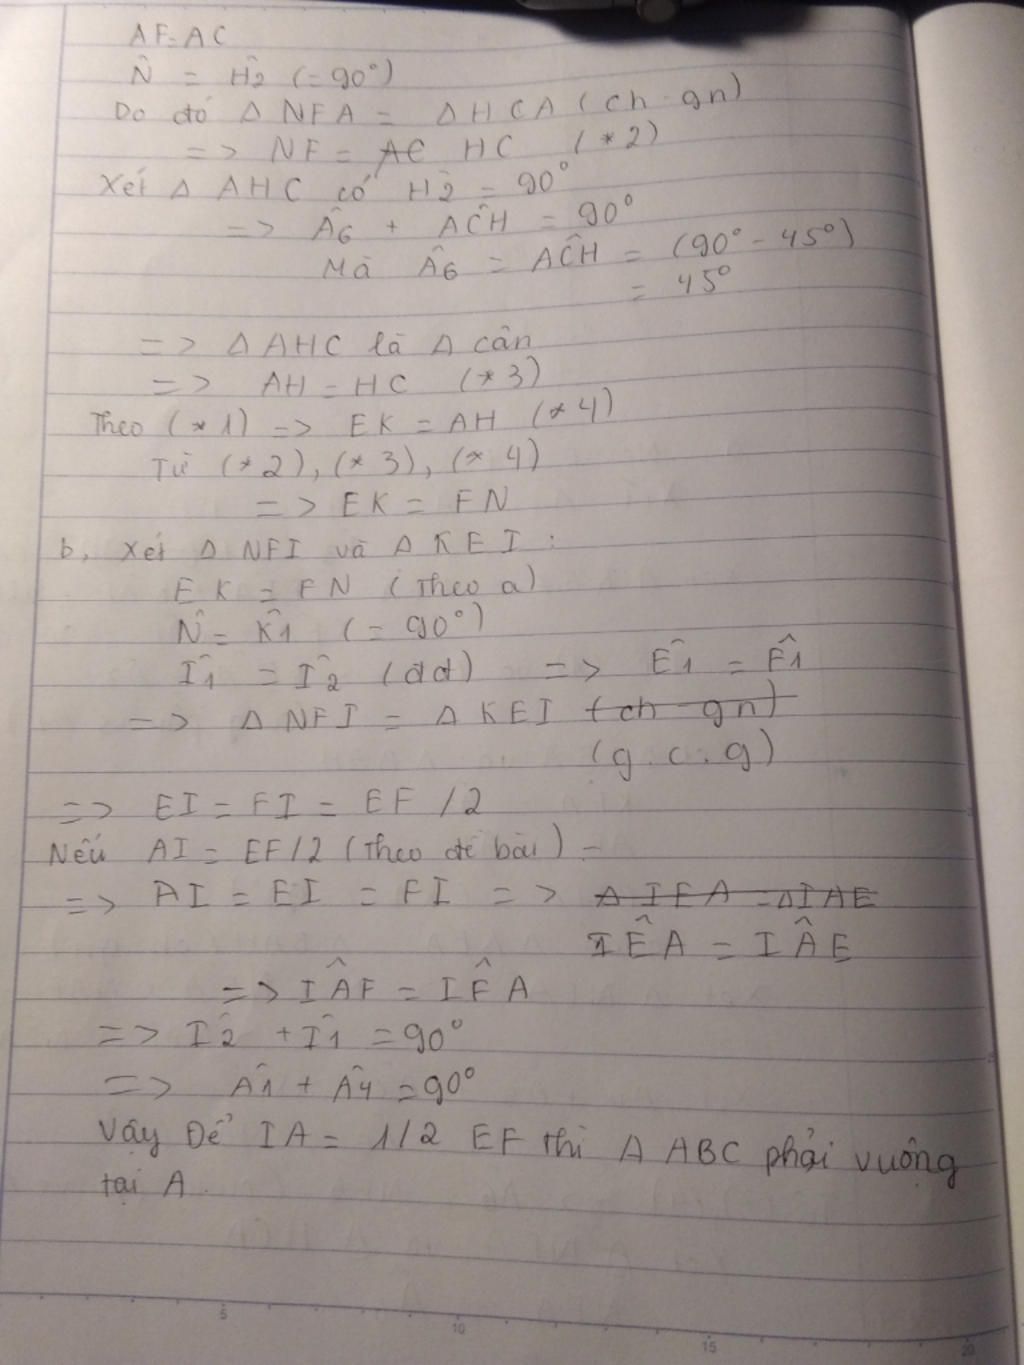 AF = AC
N̂ = Ĥ2 (= 90°)
Do đó Δ NFA = Δ HCA (ch - gn)
=> NF = AC HC (*2)
Xét Δ AHC có Ĥ2 = 90°
=> Â6 + AĈH = 90°
Mà Â6 = AĈH = (90° - 45°)
= 45°
=> Δ AHC là Δ cân
=> AH = HC (*3)
Theo (*1) => EK = AH (*4)
Từ (*2), (*3), (*4)
=> EK = FN
b, Xét Δ NFI và Δ KEI :
EK = FN (Theo a)
N̂ = K̂1 (= 90°)
Î1 = Î2 (đđ) => Ê1 = F̂1
=> Δ NFI = Δ KEI (ch - gn)
(g.c.g)
=> EI = FI = EF /2
Nếu AI = EF/2 (Theo đề bài) -
=> AI = EI = FI => Δ IFA = Δ IAE
IÊA = IÂE
=> IÂF = IF̂A
=> Î2 + Î1 = 90°
=> Â1 + Â4 = 90°
Vậy Để IA = 1/2 EF thì Δ ABC phải vuông
tại A.
5 10 15 20